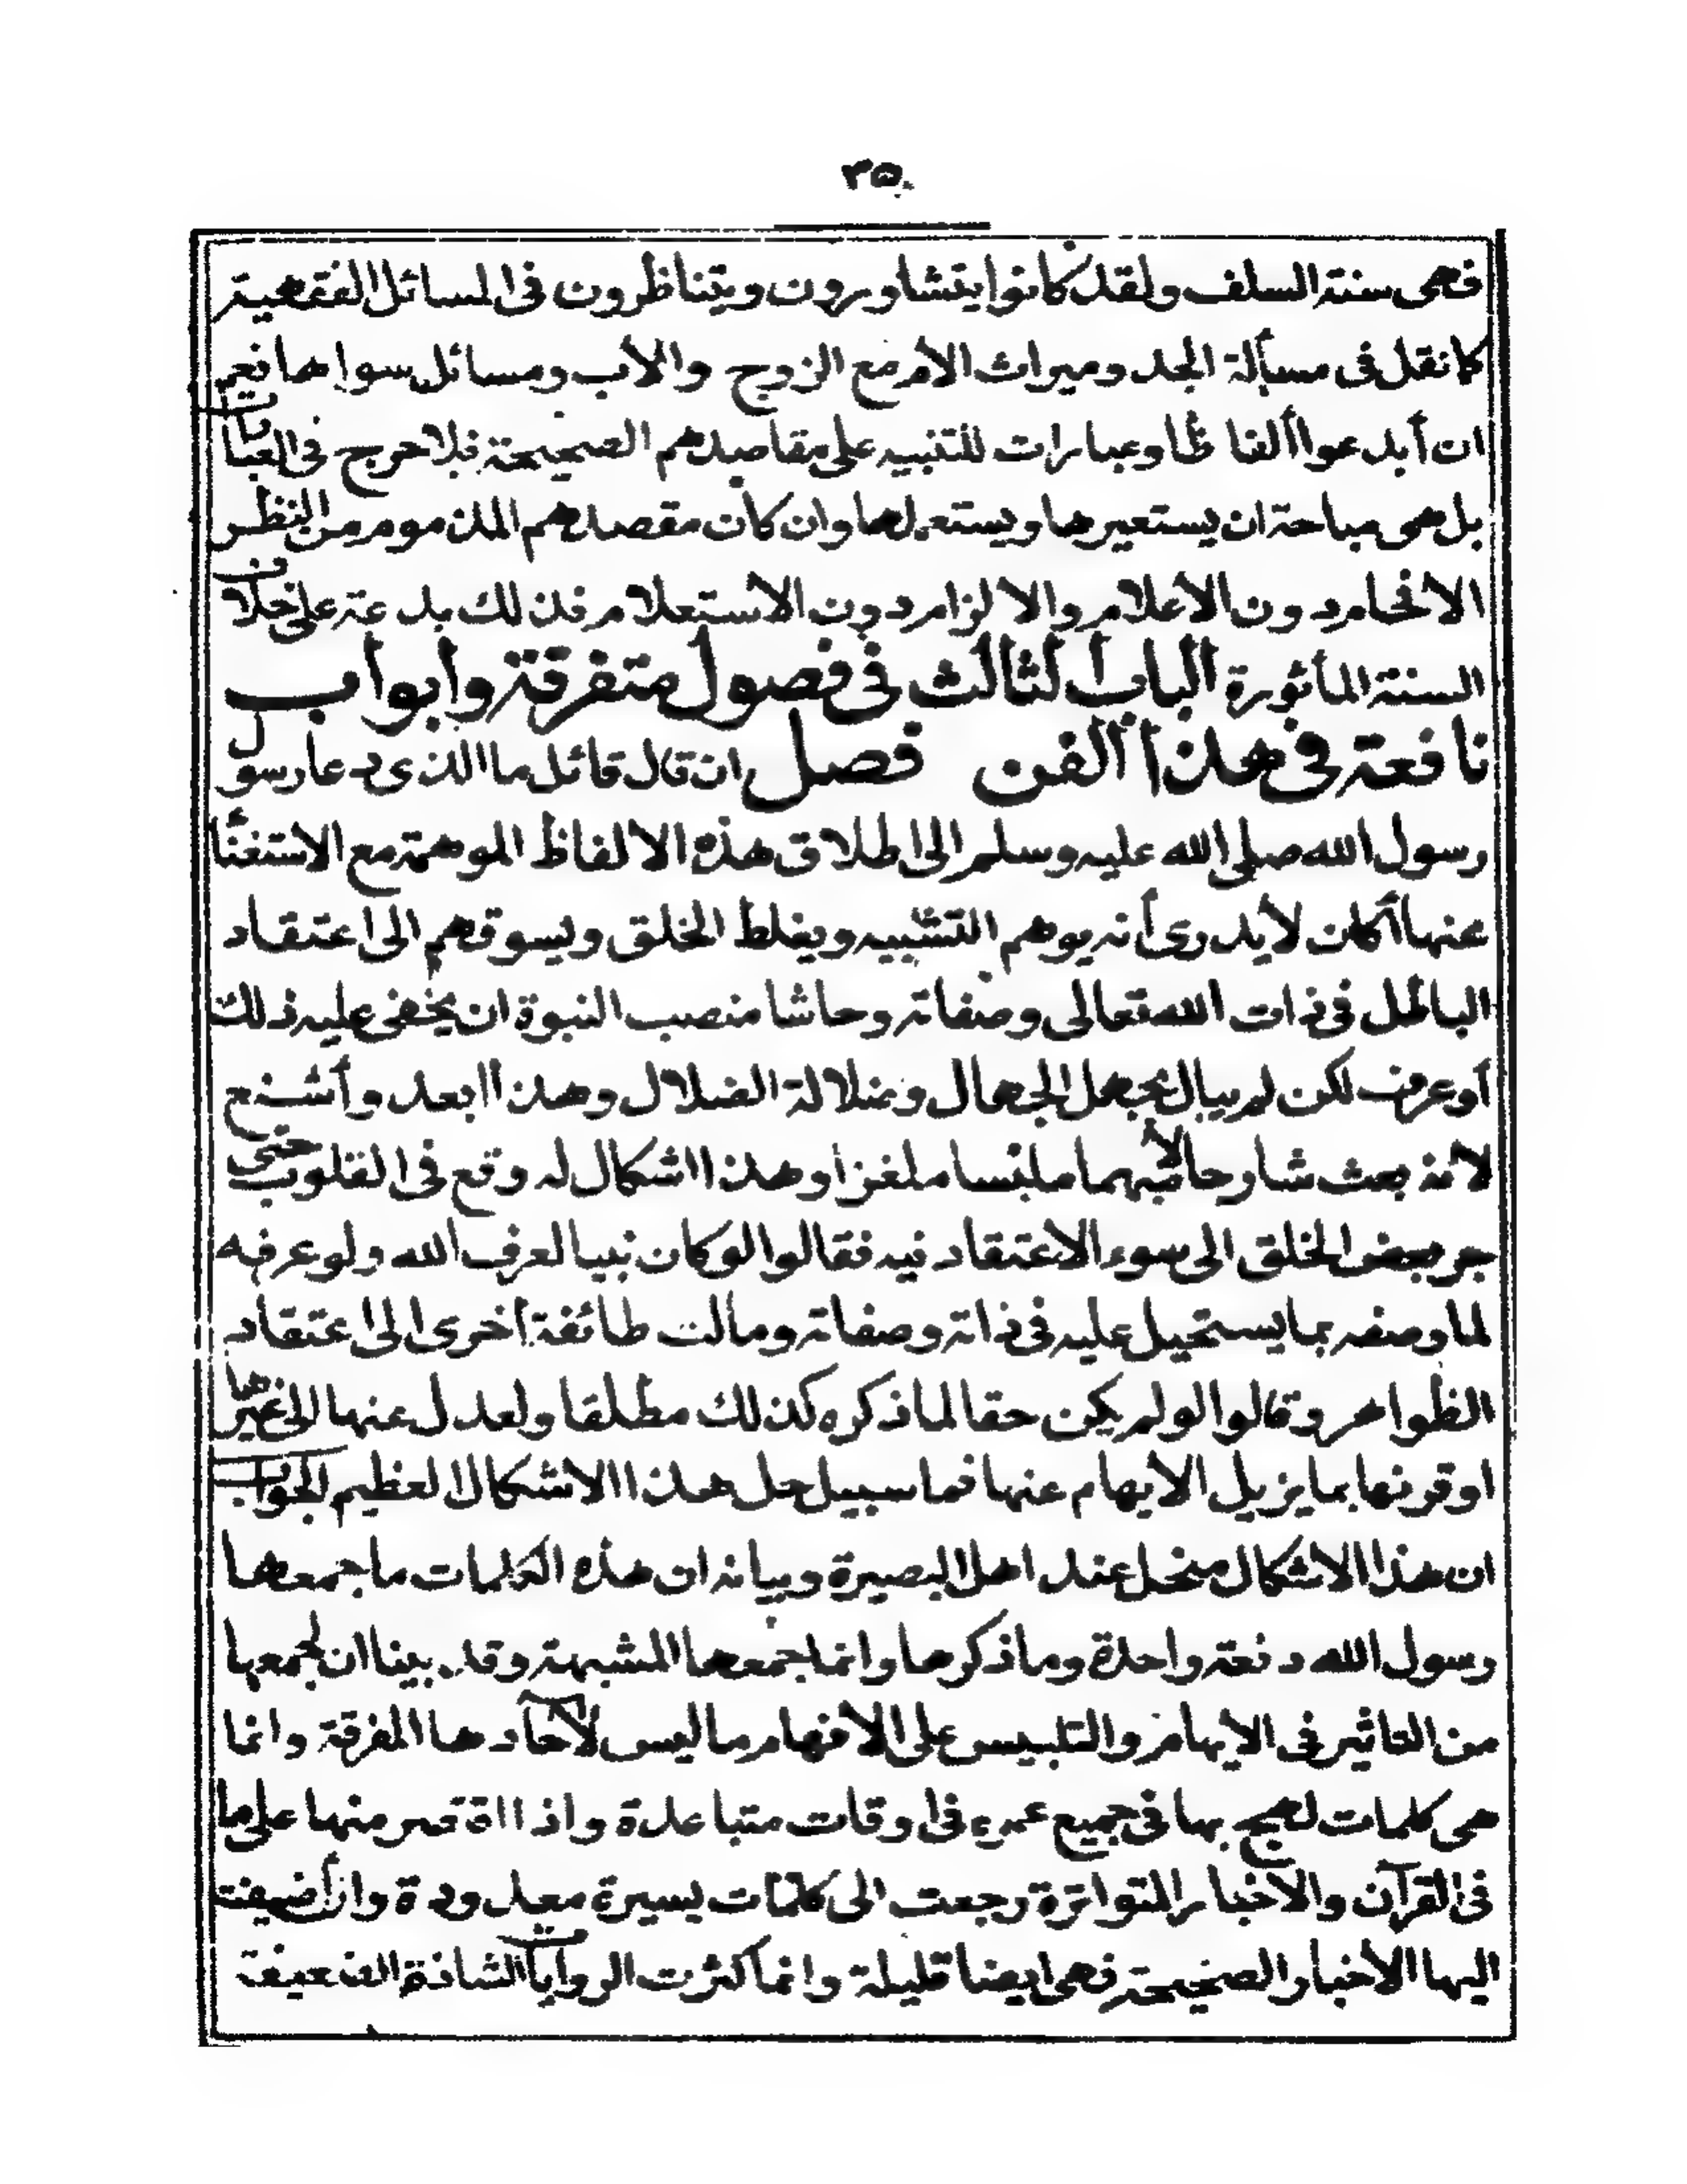 ٣٥
فهى سنة السلف ولقد كانوا يتشاورون ويتناظرون فى المسائل الفقهية
كما نقل فى مسألة الجد وميراث الأم مع الزوج والأب ومسائل سواها نعم
ان أبدعوا ألفاظا وعبارات للتنبيه على مقاصدهم الصحيحة فلا حرج فى العبارات
بل هى مباحة ان يستعيرها ويستعملها وان كان مقصدهم المذموم من النظر
الافحام دون الاعلام والالزام دون الاستعلام فذلك بدعة على خلاف
السنة المأثورة الباب الثالث فى فصول متفرقة وأبواب
نافعة فى هذا الفن فصل ان قال قائل ما الذى دعا رسول
رسول الله صلى الله عليه وسلم الى اطلاق هذه الالفاظ الموهمة مع الاستغناء
عنها أكان لا يدرى أنه يوهم التشبيه ويغلط الخلق ويسوقهم الى اعتقاد
الباطل فى ذات الله تعالى وصفاته وحاشا منصب النبوة ان يخفى عليه ذلك
أو عرف لكن لم يبال بجهل الجهال وضلالة الضلال وهذا أبعد وأشنع
لأنه بعث شارحا لا مبهما ملبسا ملغزا وهذا اشكال له وقع فى القلوب حتى
جر بعض الخلق الى سوء الاعتقاد فيه فقالوا لو كان نبيا لعرف الله ولو عرفه
لما وصفه بما يستحيل عليه فى ذاته وصفاته ومالت طائفة أخرى الى اعتقاد
الظواهر وقالوا لو لم يكن حقا لما ذكره كذلك مطلقا ولعدل عنها الى غيرها
او قرنها بما يزيل الايهام عنها فما سبيل حل هذا الاشكال العظيم الجواب
ان هذا الاشكال منحل عند اهل البصيرة وبيانه ان هذه الكلمات ما جمعها
رسول الله دفعة واحدة وما ذكرها وانما جمعها المشبهة وقد بينا ان لجمعها
من التاثير فى الايهام والتلبيس على الافهام ما ليس لآحادها المفرقة وانما
هى كلمات لهج بها فى جميع عمره فى اوقات متباعدة واذا اقتصر منها على ما
فى القرآن والاخبار المتواترة رجعت الى كلمات يسيرة معدودة وان أضيفت
اليها الأخبار الصحيحة فهى ايضا قليلة وانما كثرت الروايات الشاذة الضعيفة